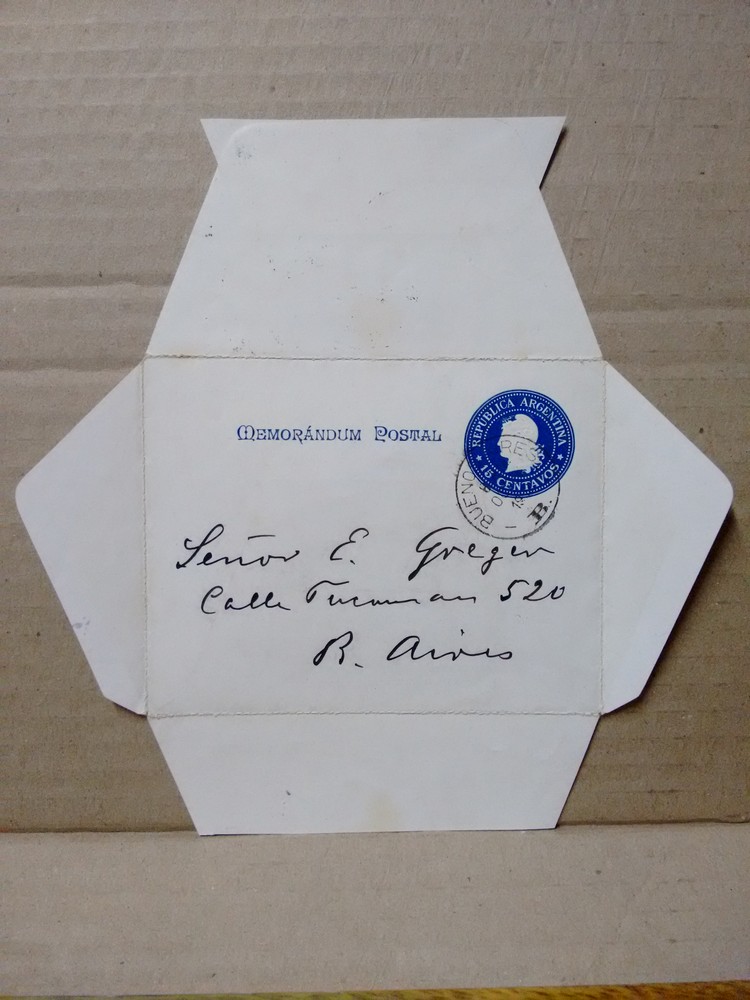 REPUBLICA ARGENTINA
15 CENTAVOS
MEMORÁNDUM POSTAL
BUENOS AIRES
B.
Señor E. Greger
Calle Tucuman 520
B. Aires